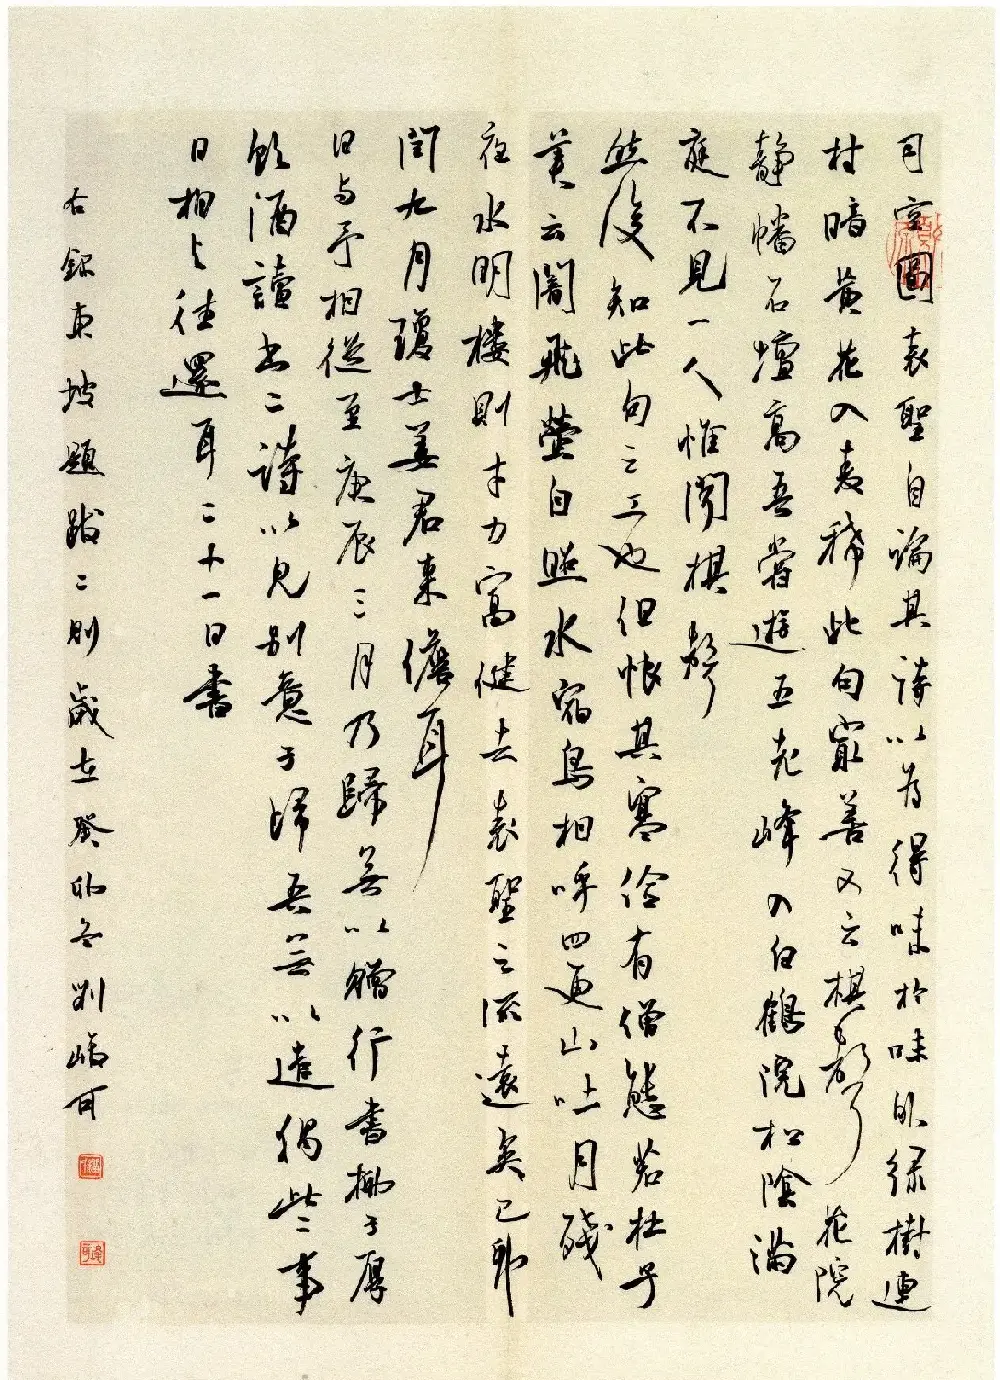 司空圖表聖自論其詩以為得味於味外綠樹連
村暗黃花入麥稀此句最善又云棋聲花院
靜幡影石壇高吾嘗遊五老峰入白鶴院松陰滿
庭不見一人惟聞棋聲
然後知此句之工也但恨其寒儉有僧態若杜子
美云闇飛螢自照水宿鳥相呼四更山吐月殘
夜水明樓則才力富健去表聖之流遠矣己卯
閏九月瓊士姜君來儋耳
日與予相從至庚辰三月乃歸無以贈行書柳子厚
飲酒讀書二詩以見別意子歸吾無以遣獨此二事
日相與往還耳二十一日書
右錄東坡題跋二則歲在癸卯冬劉